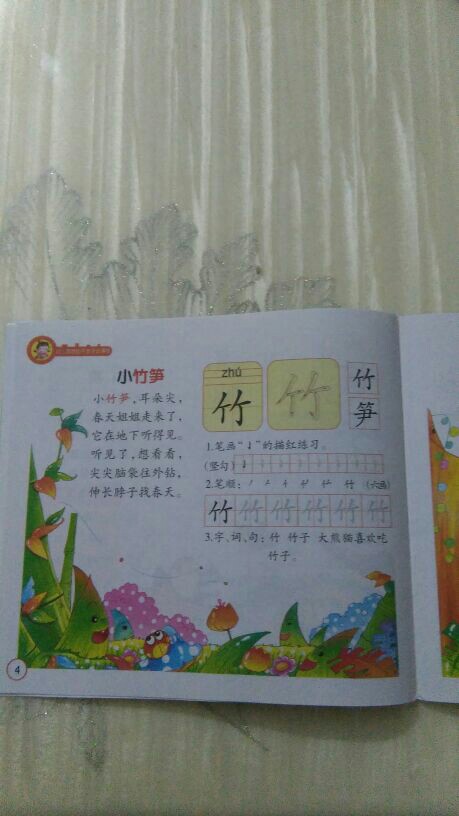 小竹笋
小竹笋,耳朵尖,
春天姐姐走来了,
它在地下听得见。
听见了,想看看,
尖尖脑袋往外钻,
伸长脖子找春天。
zhú
竹
竹
竹
笋
1.笔画“亅”的描红练习。
(竖勾)亅
2.笔顺:(六画)
竹竹竹竹竹竹
3.字、词、句:竹 竹子 大熊猫喜欢吃
竹子。
4